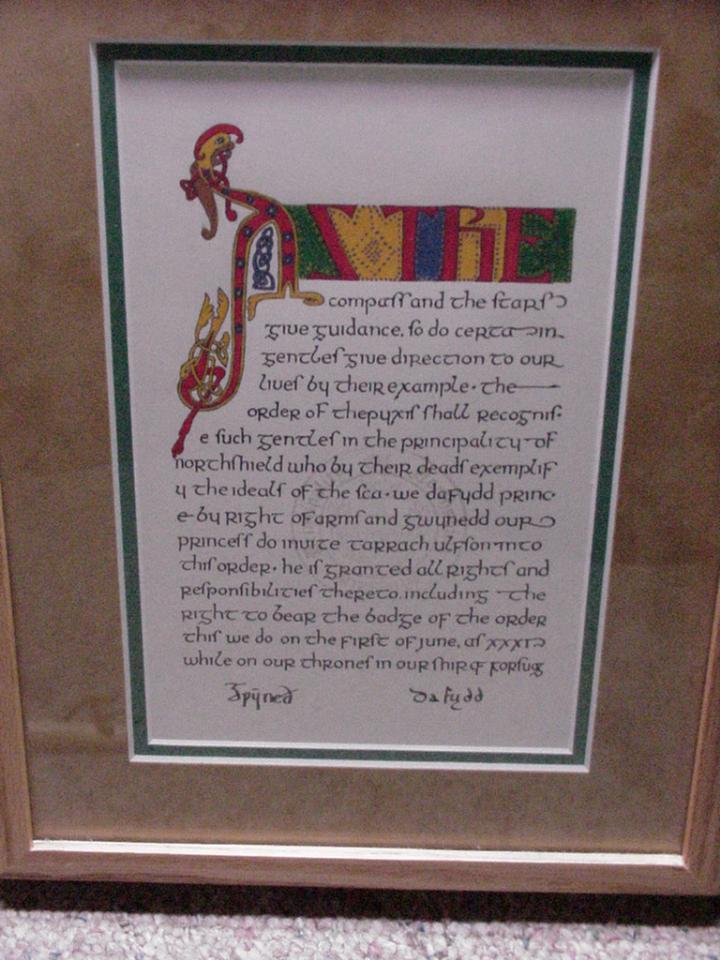 AS THE
compass and the stars
give guidance, so do certain
gentles give direction to our
lives by their example. the
order of the pyxis shall recognis
e such gentles in the principality of
northshield who by their deads exemplif
y the ideals of the sca. we dafydd princ
e by right of arms and gwynedd our
princess do invite tarrach ulfson into
this order. he is granted all rights and
responsibilities thereto. including the
right to bear the badge of the order
this we do on the first of june, as xxxi
while on our thrones in our ship of
dafydd